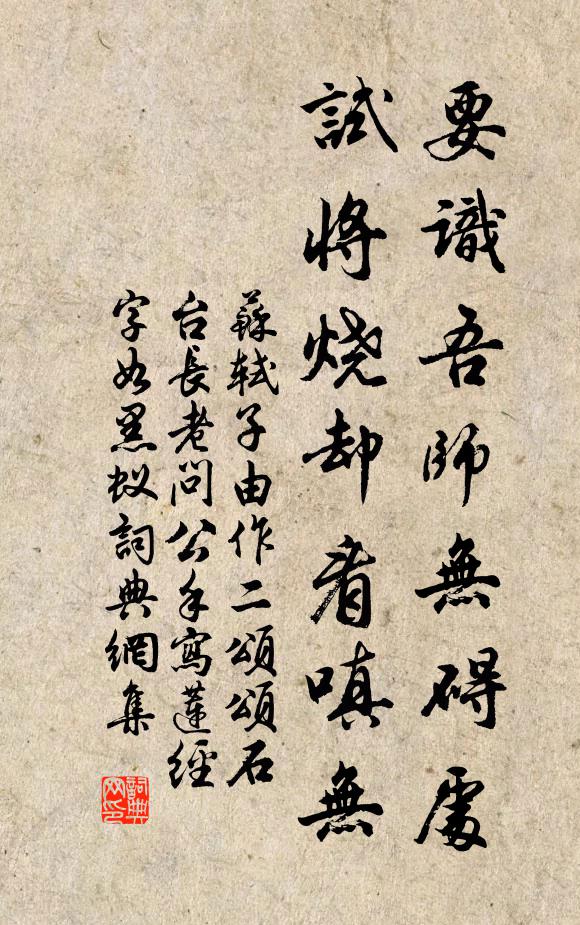 要識吾師無碍處
試將烧却看嗔無
蘇軾子由作二頌頌石
台長老問公手寫蓮經
字如黑蚁詞典網集
詞典
网印